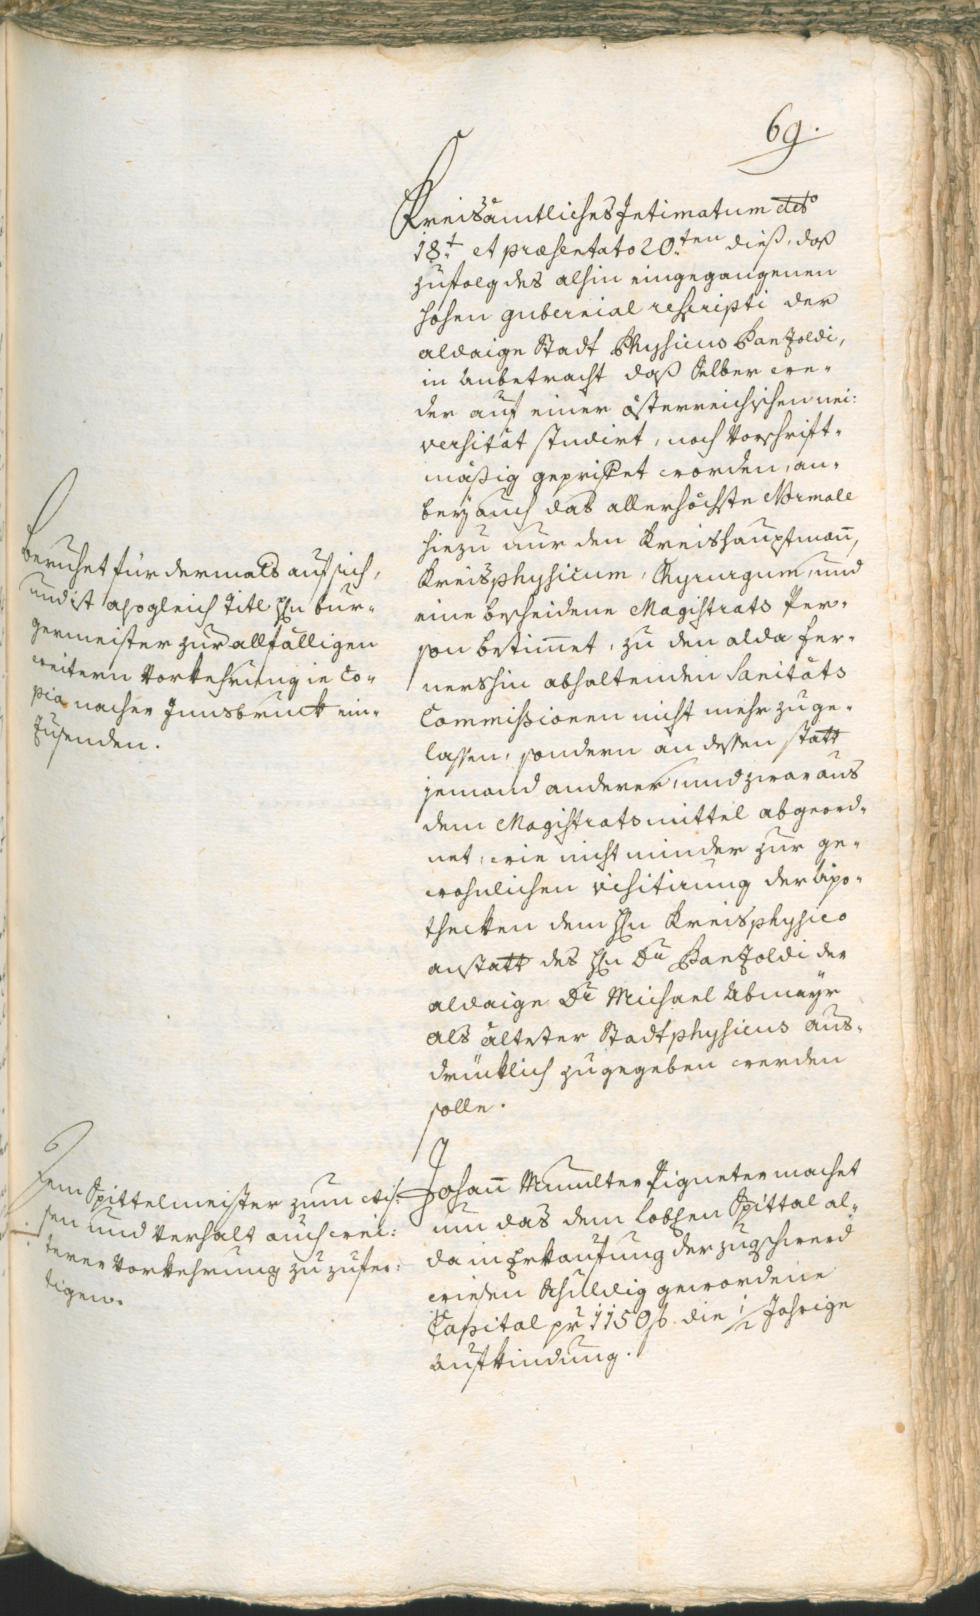 69.
Kreisämtliches Intimatum dtto
18.t et præsentato 20.ten dieß, daß
zufolg des alhin eingegangenen
hohen gubernial rescripti der
aldaige Stadt Physicus Panzoldi,
in Anbetracht daß Selber we-
der auf einer österreichischen uni:
versität studirt, noch Vorschrift-
mäßig geprüfet worden, an-
bey auch das allerhöchste Normale
hiezu nur den Kreishauptmañ,
Kreisphysicum, Chyrurgum, und
eine bescheidene Magistrats Per-
son bestim̃et, zu den alda fer-
nershin abhaltenden Sanitäts
Commißionen nicht mehr zuge-
lassen, sondern an dessen statt
jemand anderer, und zwar aus
dem Magistratsmittel abgeord-
net, wie nicht minder zur ge-
wohnlichen visitirung der Apo-
thecken dem Hn Kreisphysico
anstatt des Hn Dr Panzoldi der
aldaige Dr Michael Abmayr
als ältester Stadtphysicus aus-
drücklich zugegeben werden
solle.
Beruhet für dermals auf sich,
und ist alsogleich Titl Hn Bur-
germeister zur allfälligen
weitern Vorkehrung in Co-
pia nacher Innsbruck ein-
zusenden.
Johañ Munlter Pigneter machet
um das dem lobhen Spittal al-
da in Erkaufung der zugschwend
wiesen schuldig gewordene
Capital pr 1150 f. die 1/2 Jahrige
Aufkündung.
Dem Spittelmeister zum wis-
sen und Verhalt auch wei:
terer Vorkehrung zuzufer:
tigen.